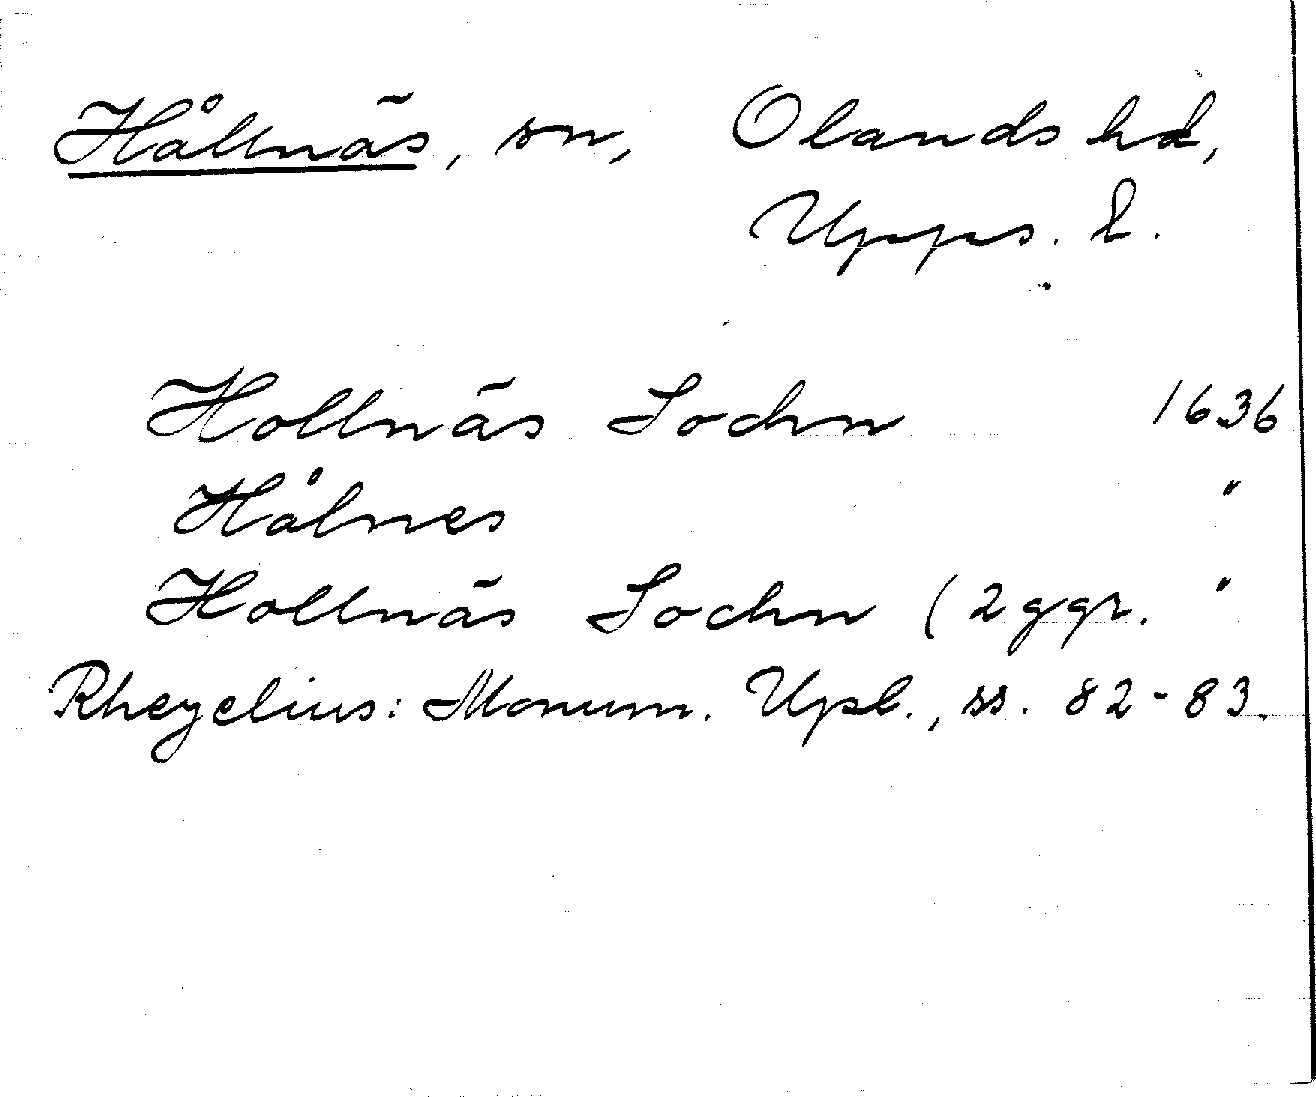 Hållnäs, sn, Olands hd,
Upps. l.
Hollnäs Sochn 1636
Hålnes "
Hollnäs Sochn (2 ggr. "
Rhezelius: Monum. Upl., ss. 82-83.